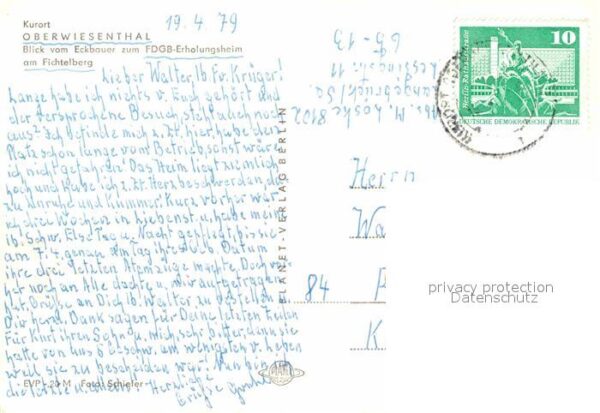 19.4.79
Kurort
OBERWIESENTHAL
Blick vom Eckbauer zum FDGB-Erholungsheim
am Fichtelberg
Lieber Walter, lb Fr. Krüger!
Lange habe ich nichts v. Euch gehört und
der versprochene Besuch steht auch noch
aus! Ich befinde mich z. Zt. hier, habe den
Platz schon lange vom Betrieb, sonst wäre
ich nicht gefahren. Das Heim liegt ziemlich
hoch und habe ich z. Zt. Herzbeschwerden, da
zu Unruhe und Kummer. Kurz vorher war
ich drei Wochen in und habe meine
lb. Schw. Else Tag u. Nacht gepflegt, bis sie
am 7.4. genau am Tag ihres Datum
ihre drei letzten Atemzüge machte. Doch vor
her noch an Alle dachte u. mir aufgetragen
hat, Grüße an Dich lb. Walter zu bestellen.
Dir herzl. Dank sagen für Deine letzten Zeilen
Für Kurt ihren Sohn mich, schreibt er, dann sie
hatte von uns 6 Geschw. am wenigsten v. Leben
weil sie zu bescheiden war! Nun bin
die letzte Herzliche
Grüße
EVP -,20 M Foto: Schiefer
PLANET-VERLAG BERLIN
Abs. M. Loske 8102
Langebrück/Sa.
11
65-13
Berlin, Rathausstraße
10
DEUTSCHE DEMOKRATISCHE REPUBLIK
Herrn
Wa
84 R
K
privacy protection
Datenschutz